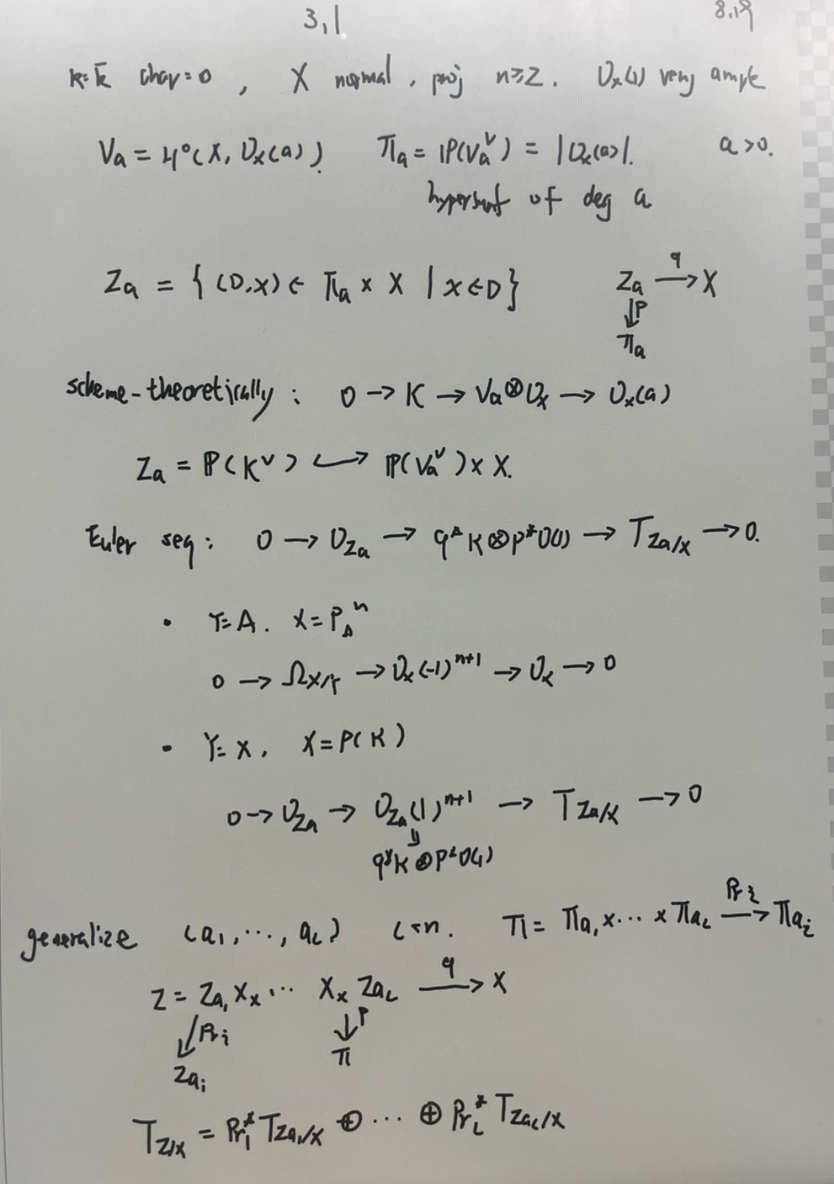 3,1
8.19
k=k̄ char=0 , X normal, proj n≥2. O_X(1) very ample
V_a = H⁰(X, O_X(a)) Π_a = P(V_a^∨) = |O_X(a)|. a>0.
hypersurf of deg a
Z_a = { (D,x) ∈ Π_a × X | x∈D } Z_a →^q X
↓p
Π_a
scheme-theoretically : 0 → K → V_a⊗O_X → O_X(a)
Z_a = P(K^∨) ↪ P(V_a^∨) × X.
Euler seq: 0 → O_{Z_a} → q^*K⊗p^*O(1) → T_{Z_a/X} → 0.
• Y=A. X=P_A^n
0 → Ω_{X/Y} → O_X(-1)^{n+1} → O_X → 0
• Y=X, X=P(K)
0 → O_{Z_a} → O_{Z_a}(1)^{n+1} → T_{Z_a/X} → 0
q^*K⊗p^*O(1)
generalize (a_1,⋯,a_c) c≤n. Π = Π_{a_1}×⋯×Π_{a_c} →^{Pr_i} Π_{a_i}
Z = Z_{a_1}×_X ⋯ ×_X Z_{a_c} →^q X
↙Pr_i ↓p
Z_{a_i} Π
T_{Z/X} = Pr_1^* T_{Z_{a_1}/X} ⊕ ⋯ ⊕ Pr_c^* T_{Z_{a_c}/X}